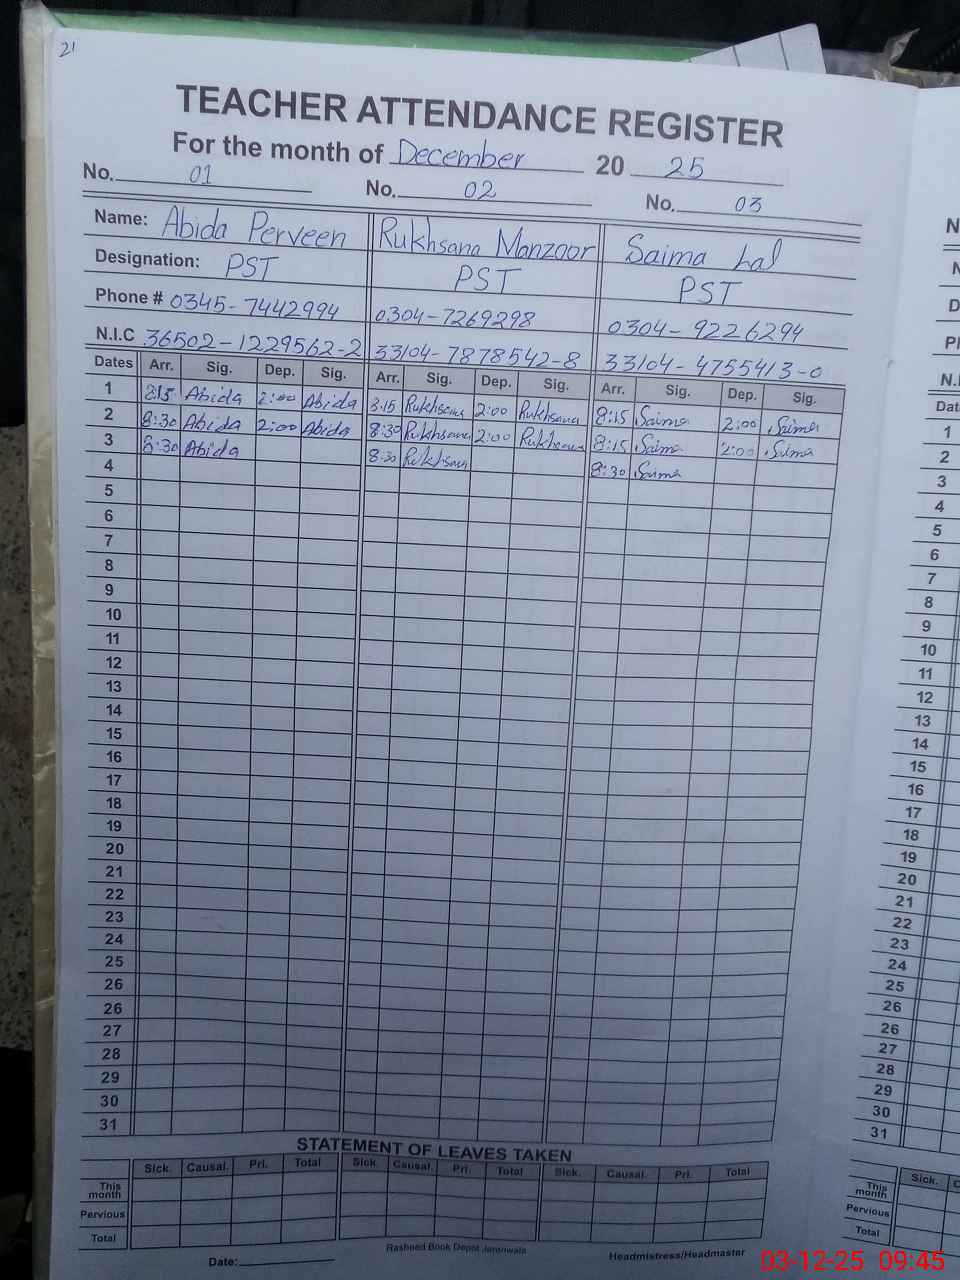 21
TEACHER ATTENDANCE REGISTER
For the month of December 20 25
No. 01 No. 02 No. 03
Name: Abida Perveen Rukhsana Manzoor Saima Lal
Designation: PST PST PST
Phone # 0345-7442994 0304-7269298 0304-9226294
N.I.C 36502-1229562-2 33104-7878542-8 33104-4755413-0
Dates Arr. Sig. Dep. Sig. Arr. Sig. Dep. Sig. Arr. Sig. Dep. Sig.
1 8:15 Abida 2:00 Abida 8:15 Rukhsana 2:00 Rukhsana 8:15 Saima 2:00 Saima
2 8:30 Abida 2:00 Abida 8:30 Rukhsana 2:00 Rukhsana 8:15 Saima 2:00 Saima
3 8:30 Abida 8:30 Rukhsana 8:30 Saima
4
5
6
7
8
9
10
11
12
13
14
15
16
17
18
19
20
21
22
23
24
25
26
26
27
28
29
30
31
STATEMENT OF LEAVES TAKEN
Sick. Causal. Pri. Total Sick. Causal. Pri. Total Sick. Causal. Pri. Total
This month
Pervious
Total
Rasheed Book Depot Jaranwala
Date: Headmistress/Headmaster
N
N
D
Pl
N.I
Dat
1
2
3
4
5
6
7
8
9
10
11
12
13
14
15
16
17
18
19
20
21
22
23
24
25
26
26
27
28
29
30
31
Sick. C
This month
Pervious
Total
03-12-25 09:45